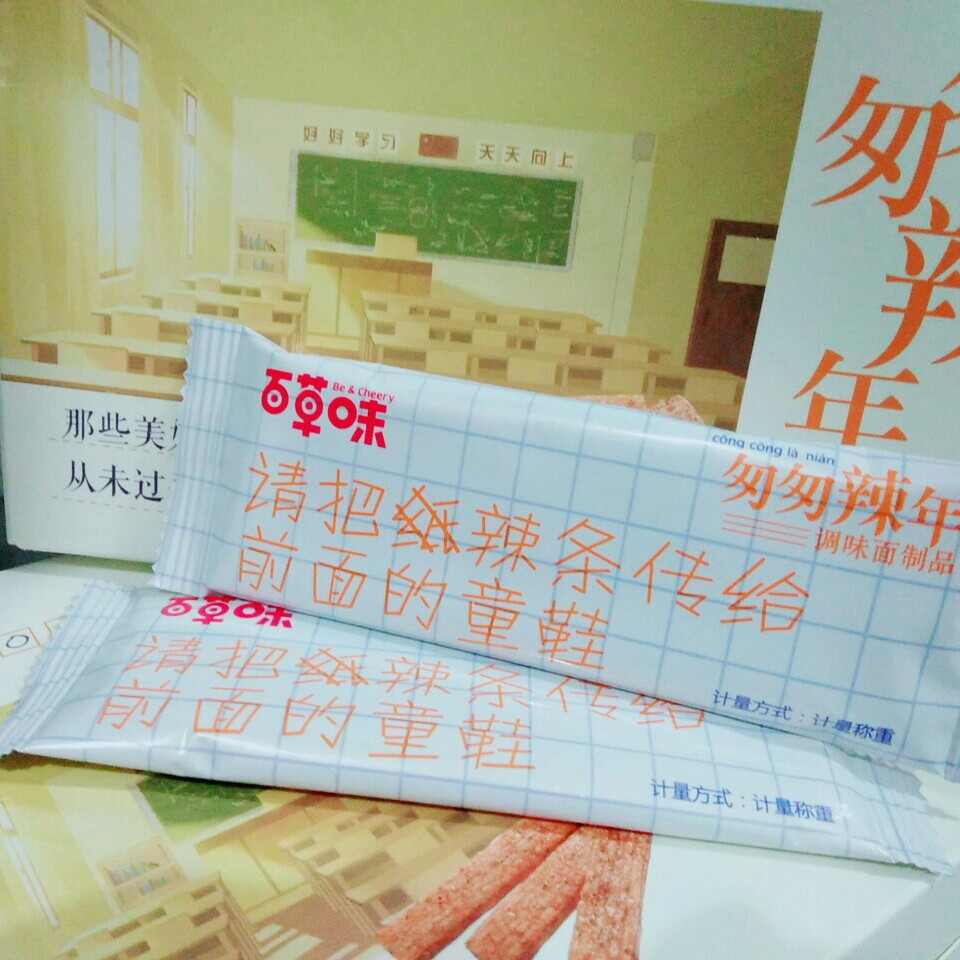 好好学习 天天向上
匆
辣
年
那些美
从未过
百草味
Be & Cheery
cōng cōng là nián
匆匆辣年
调味面制品
请把纸辣条传给
前面的童鞋
计量方式：计量称重
百草味
请把纸辣条传给
前面的童鞋
计量方式：计量称重